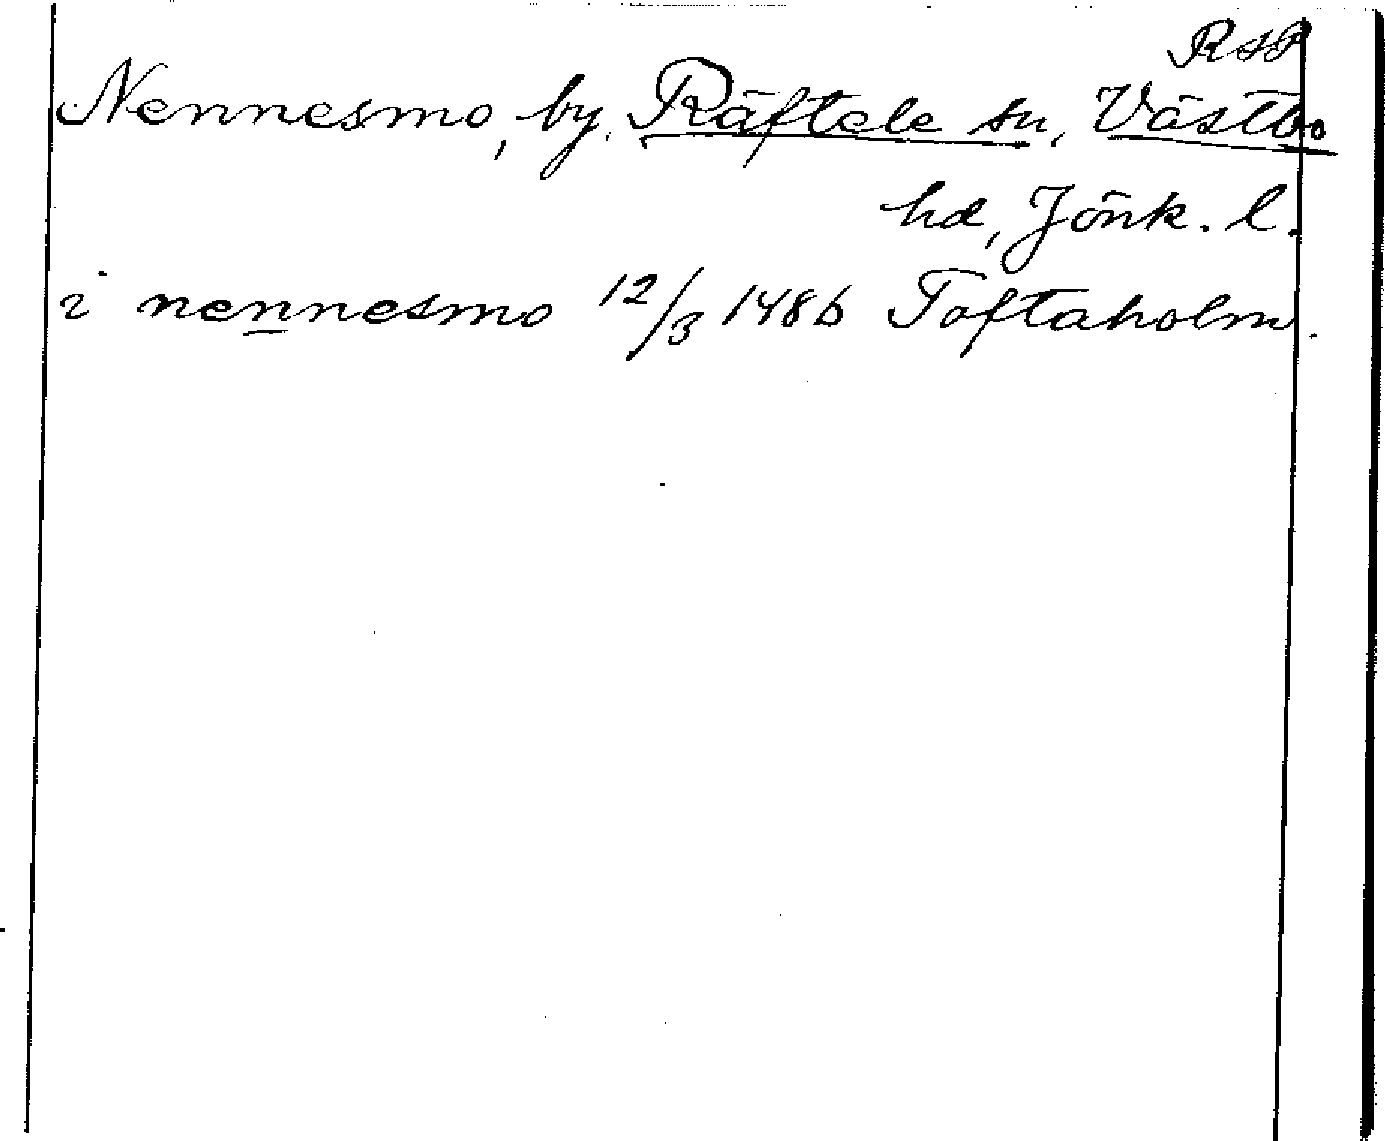 RSP
Nennesmo, by, Räftele sn, Västbo
hd, Jönk. l.
i nennesmo 12/3 1486 Toftaholm.